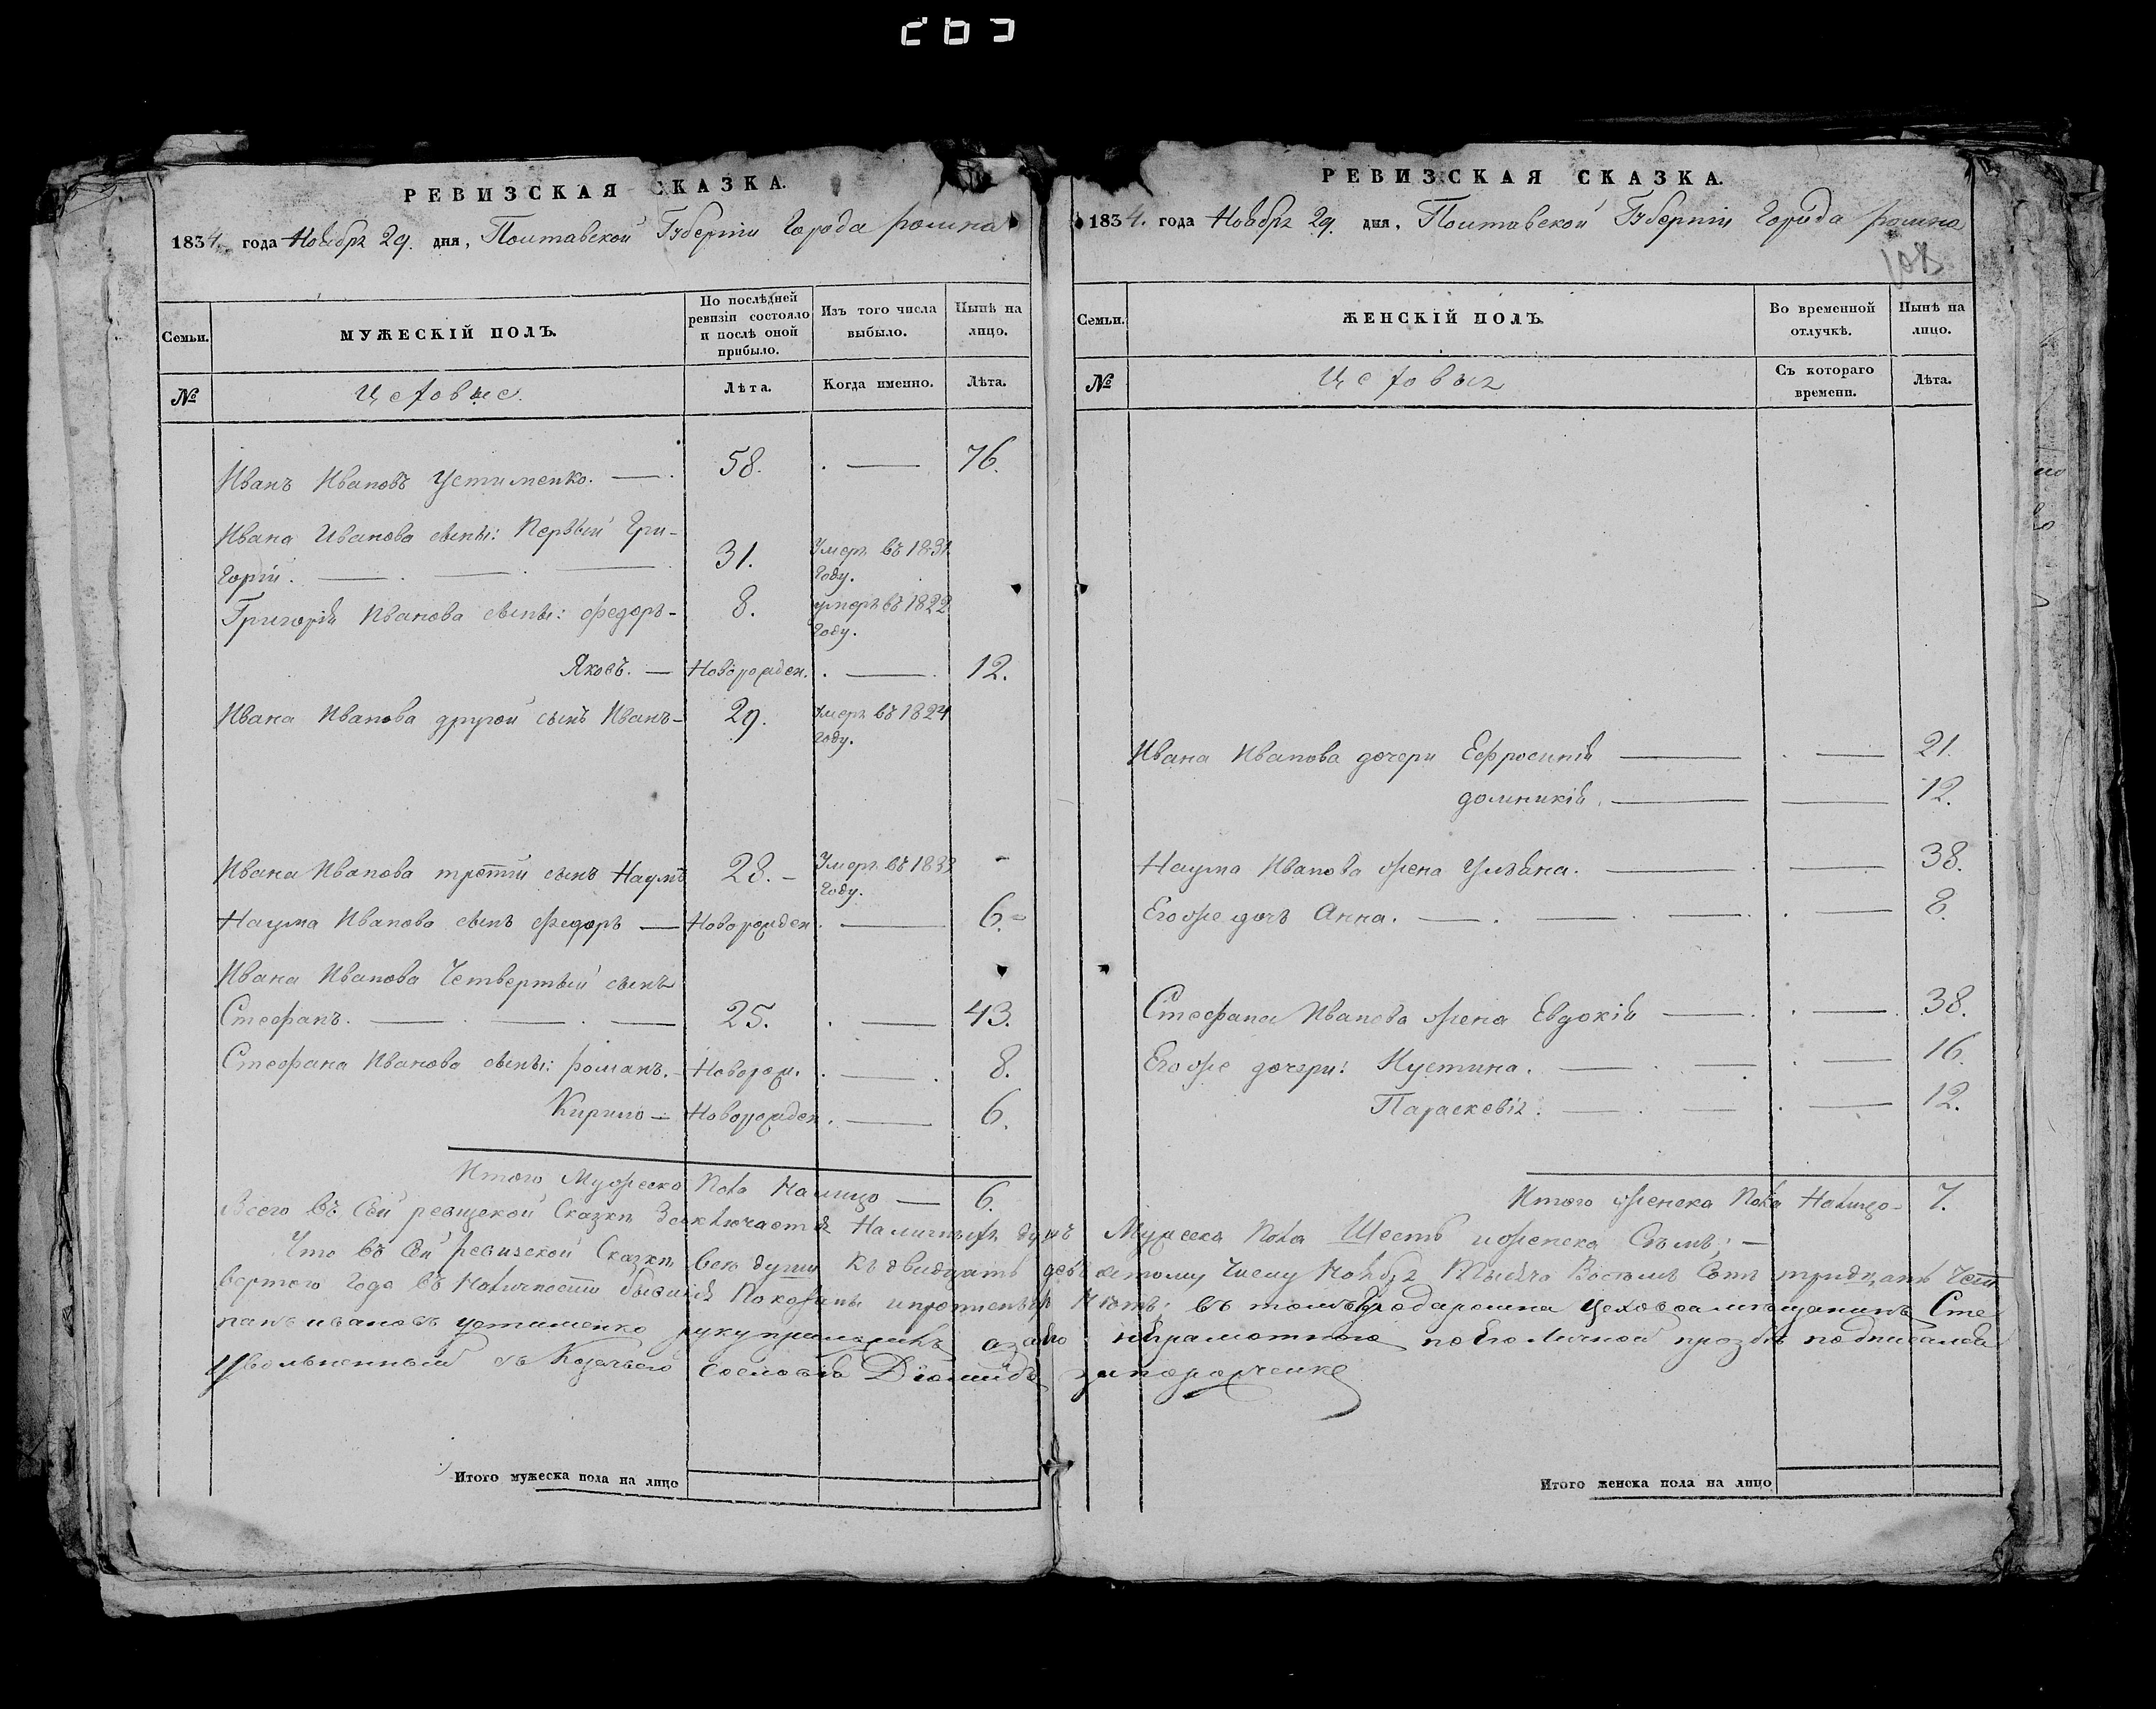 РЕВИЗСКАЯ СКАЗКА.
1834. года Ноября 29. дня, Полтавской Губернии Города ромна
Семьи.
МУЖЕСКІЙ ПОЛЪ.
По послѣдней ревизіи состояло и послѣ оной прибыло.
Изъ того числа выбыло.
Нынѣ на лицо.
№
Цеховые.
Лѣта.
Когда именно.
Лѣта.
Иванъ Ивановъ Устименко. 58. 76.
Ивана Иванова сыны: Первый Гри-
горій. 31. Умеръ въ 1831 году.
Григорія Иванова сыны: Федоръ 8. умеръ въ 1822 году.
Яковъ. Новорожден. 12.
Ивана Иванова другой сынъ Иванъ 29. Умеръ въ 1824 году.
Ивана Иванова третій сынъ Наумъ 28. Умеръ въ 1833 году.
Наума Иванова сынъ Федоръ Новорожден 6.
Ивана Иванова Четвертый сынъ
Стефанъ. 25. 43.
Стефана Иванова сыны: романъ. Новорож. 8.
Кирило Новорожден. 6.
Итого Мужеска Пола Налицо 6.
РЕВИЗСКАЯ СКАЗКА.
1834. года Ноября 29. дня, Полтавской Губерніи Города ромна
108
Семьи.
ЖЕНСКІЙ ПОЛЪ.
Во временной отлучкѣ.
Нынѣ на лицо.
№
Цеховыя
Съ котораго времени.
Лѣта.
Ивана Иванова дочери Ефросинія 21.
домникія. 12.
Наума Иванова жена Уліяна. 38.
Егоже дочь Анна. 8.
Стефана Иванова жена Евдокія 38.
Егоже дочери: Иустина. 16.
Параскевія. 12.
Итого женска Пола Налицо 7.
Всего въ Сей ревизской Сказки Заключается Наличныхъ душъ Мужеска Пола Шесть иженска Семь;
Что въ Сей ревизской Сказки все души Къ двадцать девятому Числу Ноября Тысяча Восемь Сотъ тридцать Чет
вертого Года въ Наличности бывшія Показаны ипрописныхъ Нѣтъ: въ томъ Города ромна цеховой мѣщанинъ Сте
панъ ивановъ устименко руку приложилъ азаего неграмотного поего личной прозбѣ подписался
Уволненный съ Козачьего сословія Діомидъ запорожченко
Итого мужеска пола на лицо
Итого женска пола на лицо